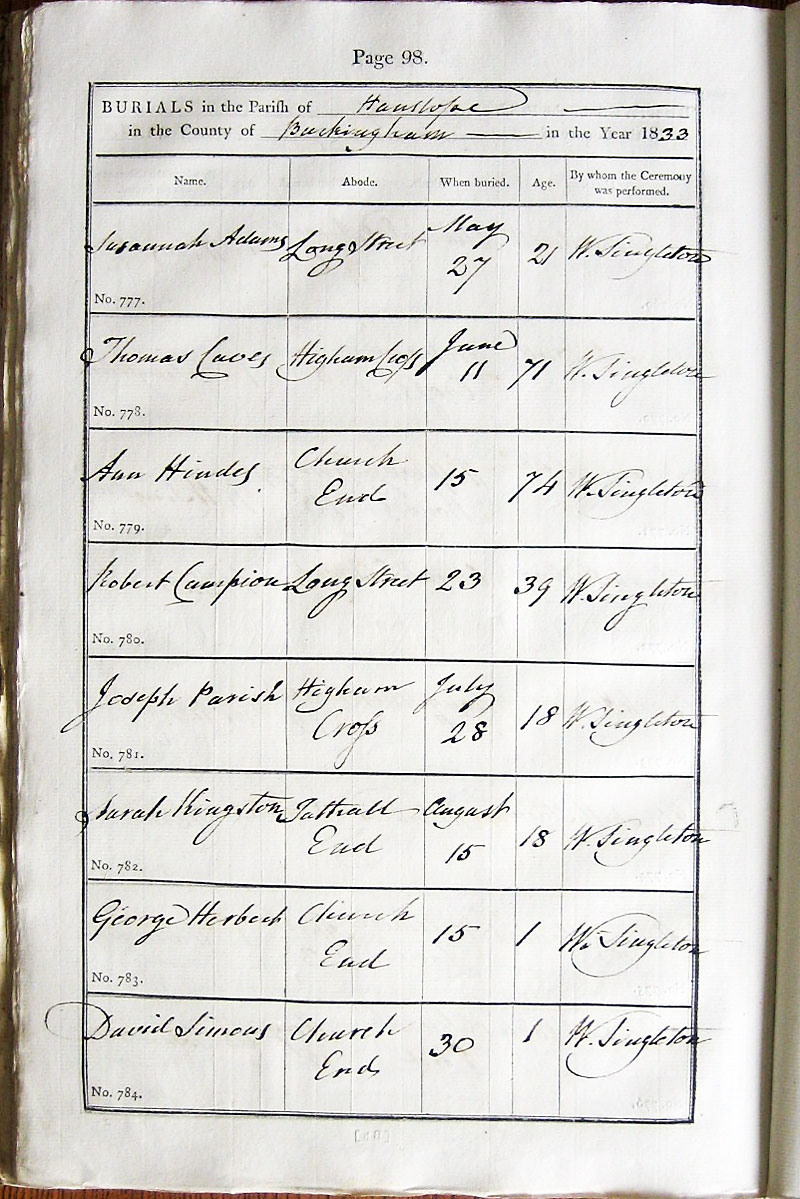 Page 98.
BURIALS in the Parish of Hanslope
in the County of Buckingham in the Year 1833
Name. Abode. When buried. Age. By whom the Ceremony was performed.
Susannah Adams Long Street May 27 21 W. Singleton
No. 777.
Thomas Caves Higham Cross June 11 71 W. Singleton
No. 778.
Ann Hindes Church End 15 74 W. Singleton
No. 779.
Robert Campion Long Street 23 39 W. Singleton
No. 780.
Joseph Parish Higham Cross July 28 18 W. Singleton
No. 781.
Sarah Kingston Tathall End August 15 18 W. Singleton
No. 782.
George Herbert Church End 15 1 Wm Singleton
No. 783.
David Simons Church End 30 1 W. Singleton
No. 784.